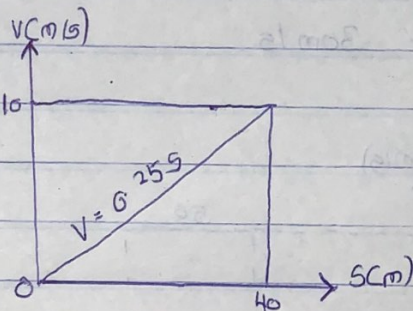 V(m/s)
10
V = 0.25S
0
40
S(m)